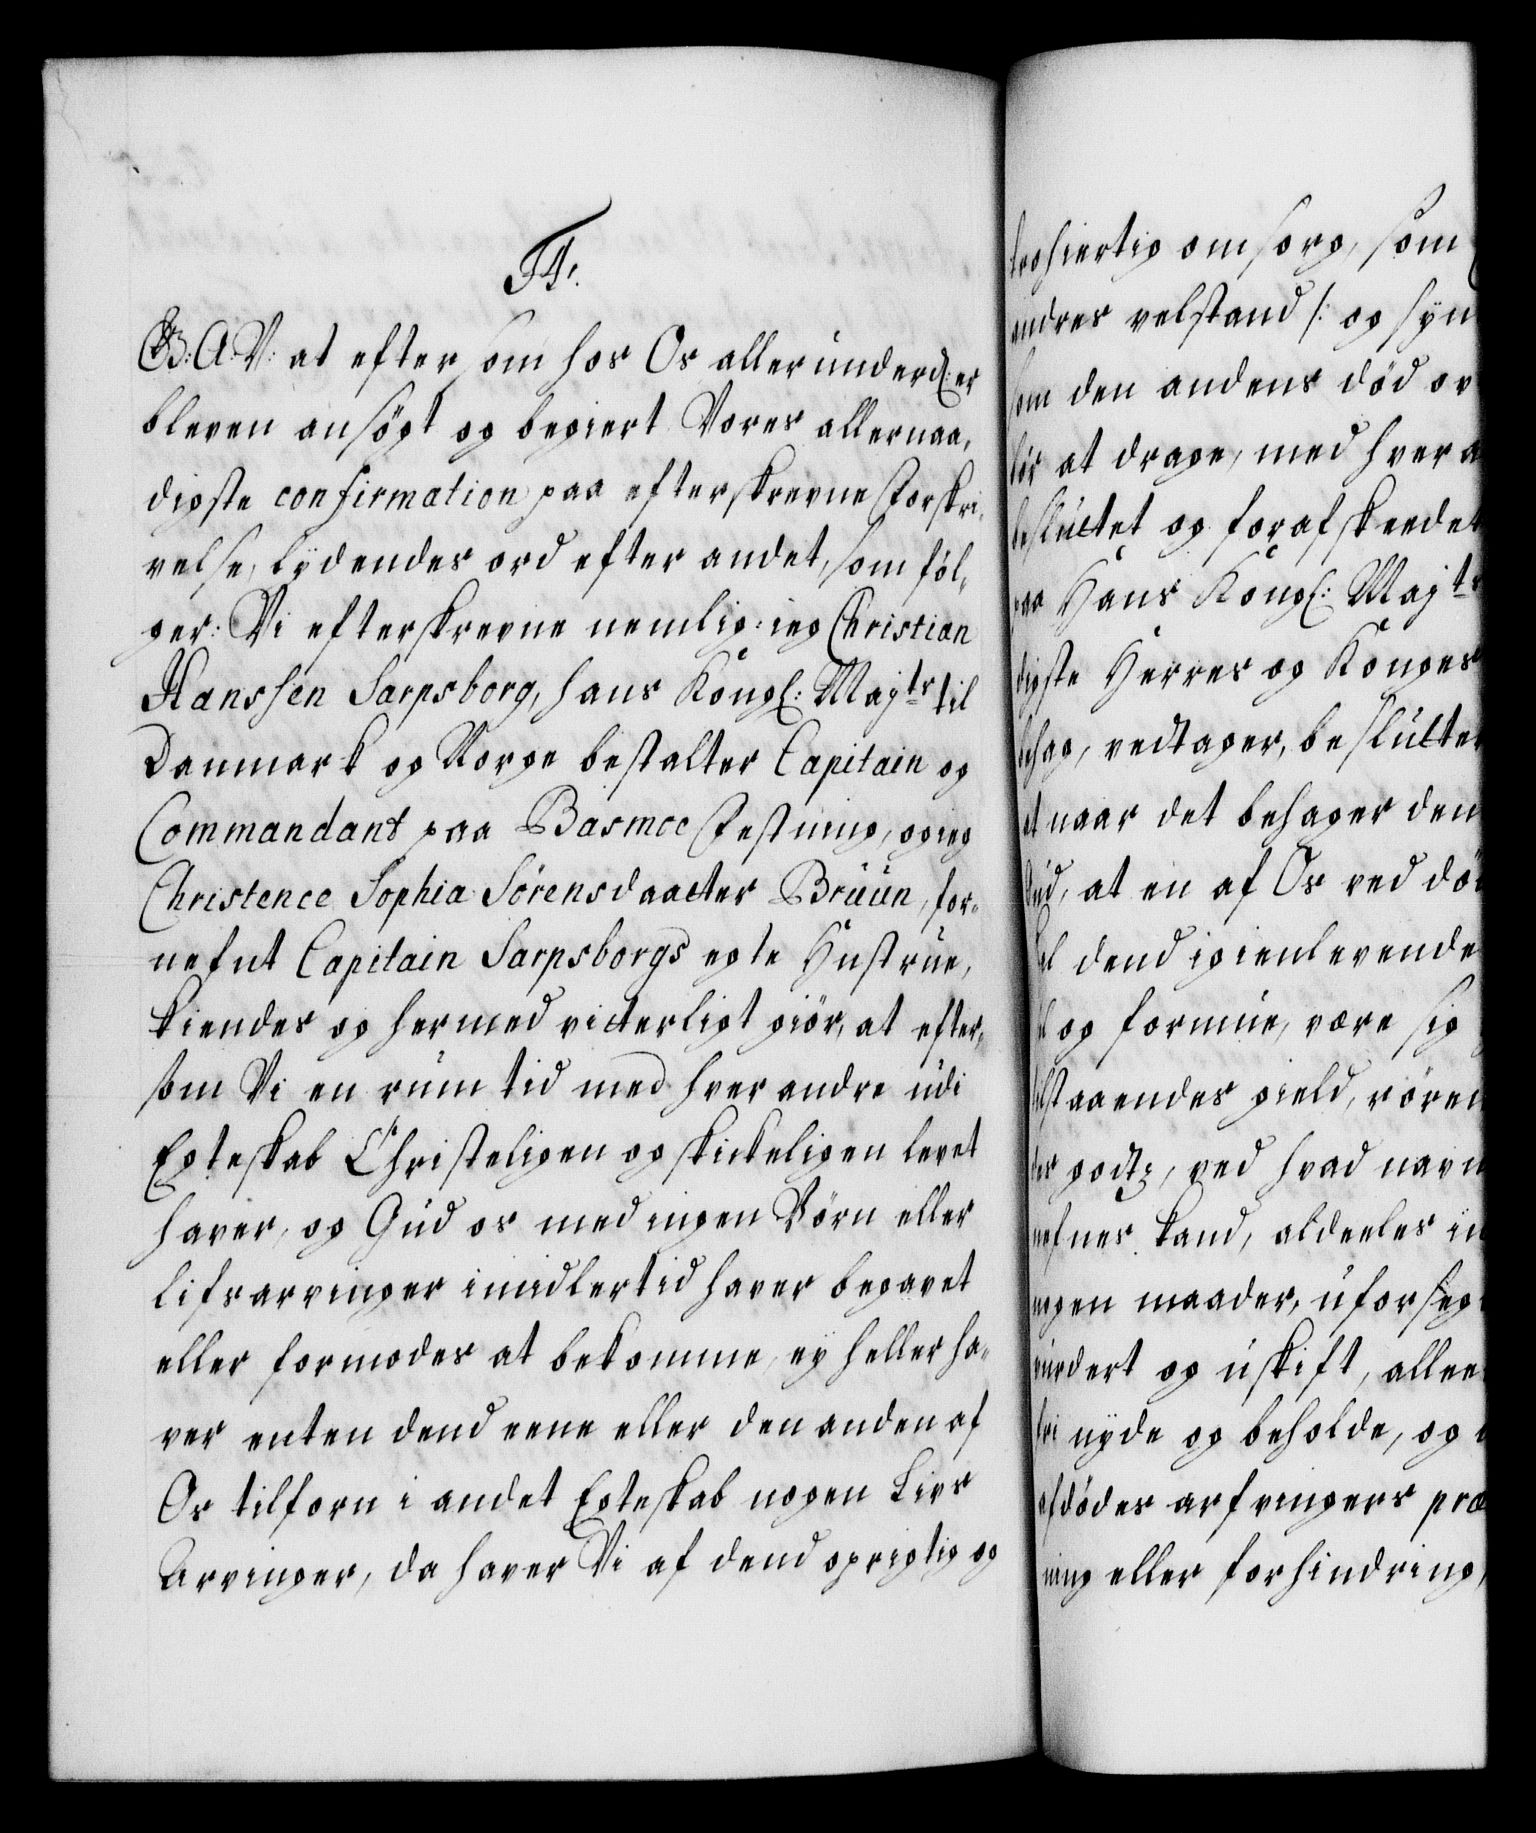 F4.
G: A: V: at eftersom hos Os allerunderd: er
bleven ansøgt og begiert Vores allernaa,
digste confirmation paa efterskrevne Forskri,
velse, lydendes ord efter andet, som føl,
ger: Vi efterskrevne nemlig: ieg Christian
Hanssen Sarpsborg, hans Kongl: Majts til
Danmark og Norge bestalter Capitain og
Commandant paa Basmoe Festning, og ieg
Christence Sophia Sørensdaatter Bruun, for-
nefnt Capitain Sarpsborgs egte Hustrue,
kiendes og hermed vitterligt giör, at efter,
som Vi en rum tid med hverandre udi
Egteskab Christeligen og skickeligen levet
haver, og Gud os med ingen Børn eller
lifsarvinger imidlertid haver begavet
eller formodes at bekomme, ey heller ha-
ver enten dend eene eller den anden af
Os tilforn i andet Egteskab nogen Livs
Arvinger, da haver Vi af dend oprigtig og
trohiertig omsorg, som
andres velstand /: og syn
som den andens død ov
lir at drage, med hver a
besluttet og forafskeedet
paa Hans Kongl: Majts
digste Herres og Konges
behag, vedtager, beslutter
at naar det behager den
Gud, at en af Os ved dö
skal dend igienlevende
og formue, være sig
tilstaaendes gield, røren
des godtz, ved hvad navn
nefnes kand, aldeeles in
ingen maader, uforseg
vurdert og uskift, allee
fri nyde og beholde, og
afdödes arfvingers præ
ning eller forhindring,